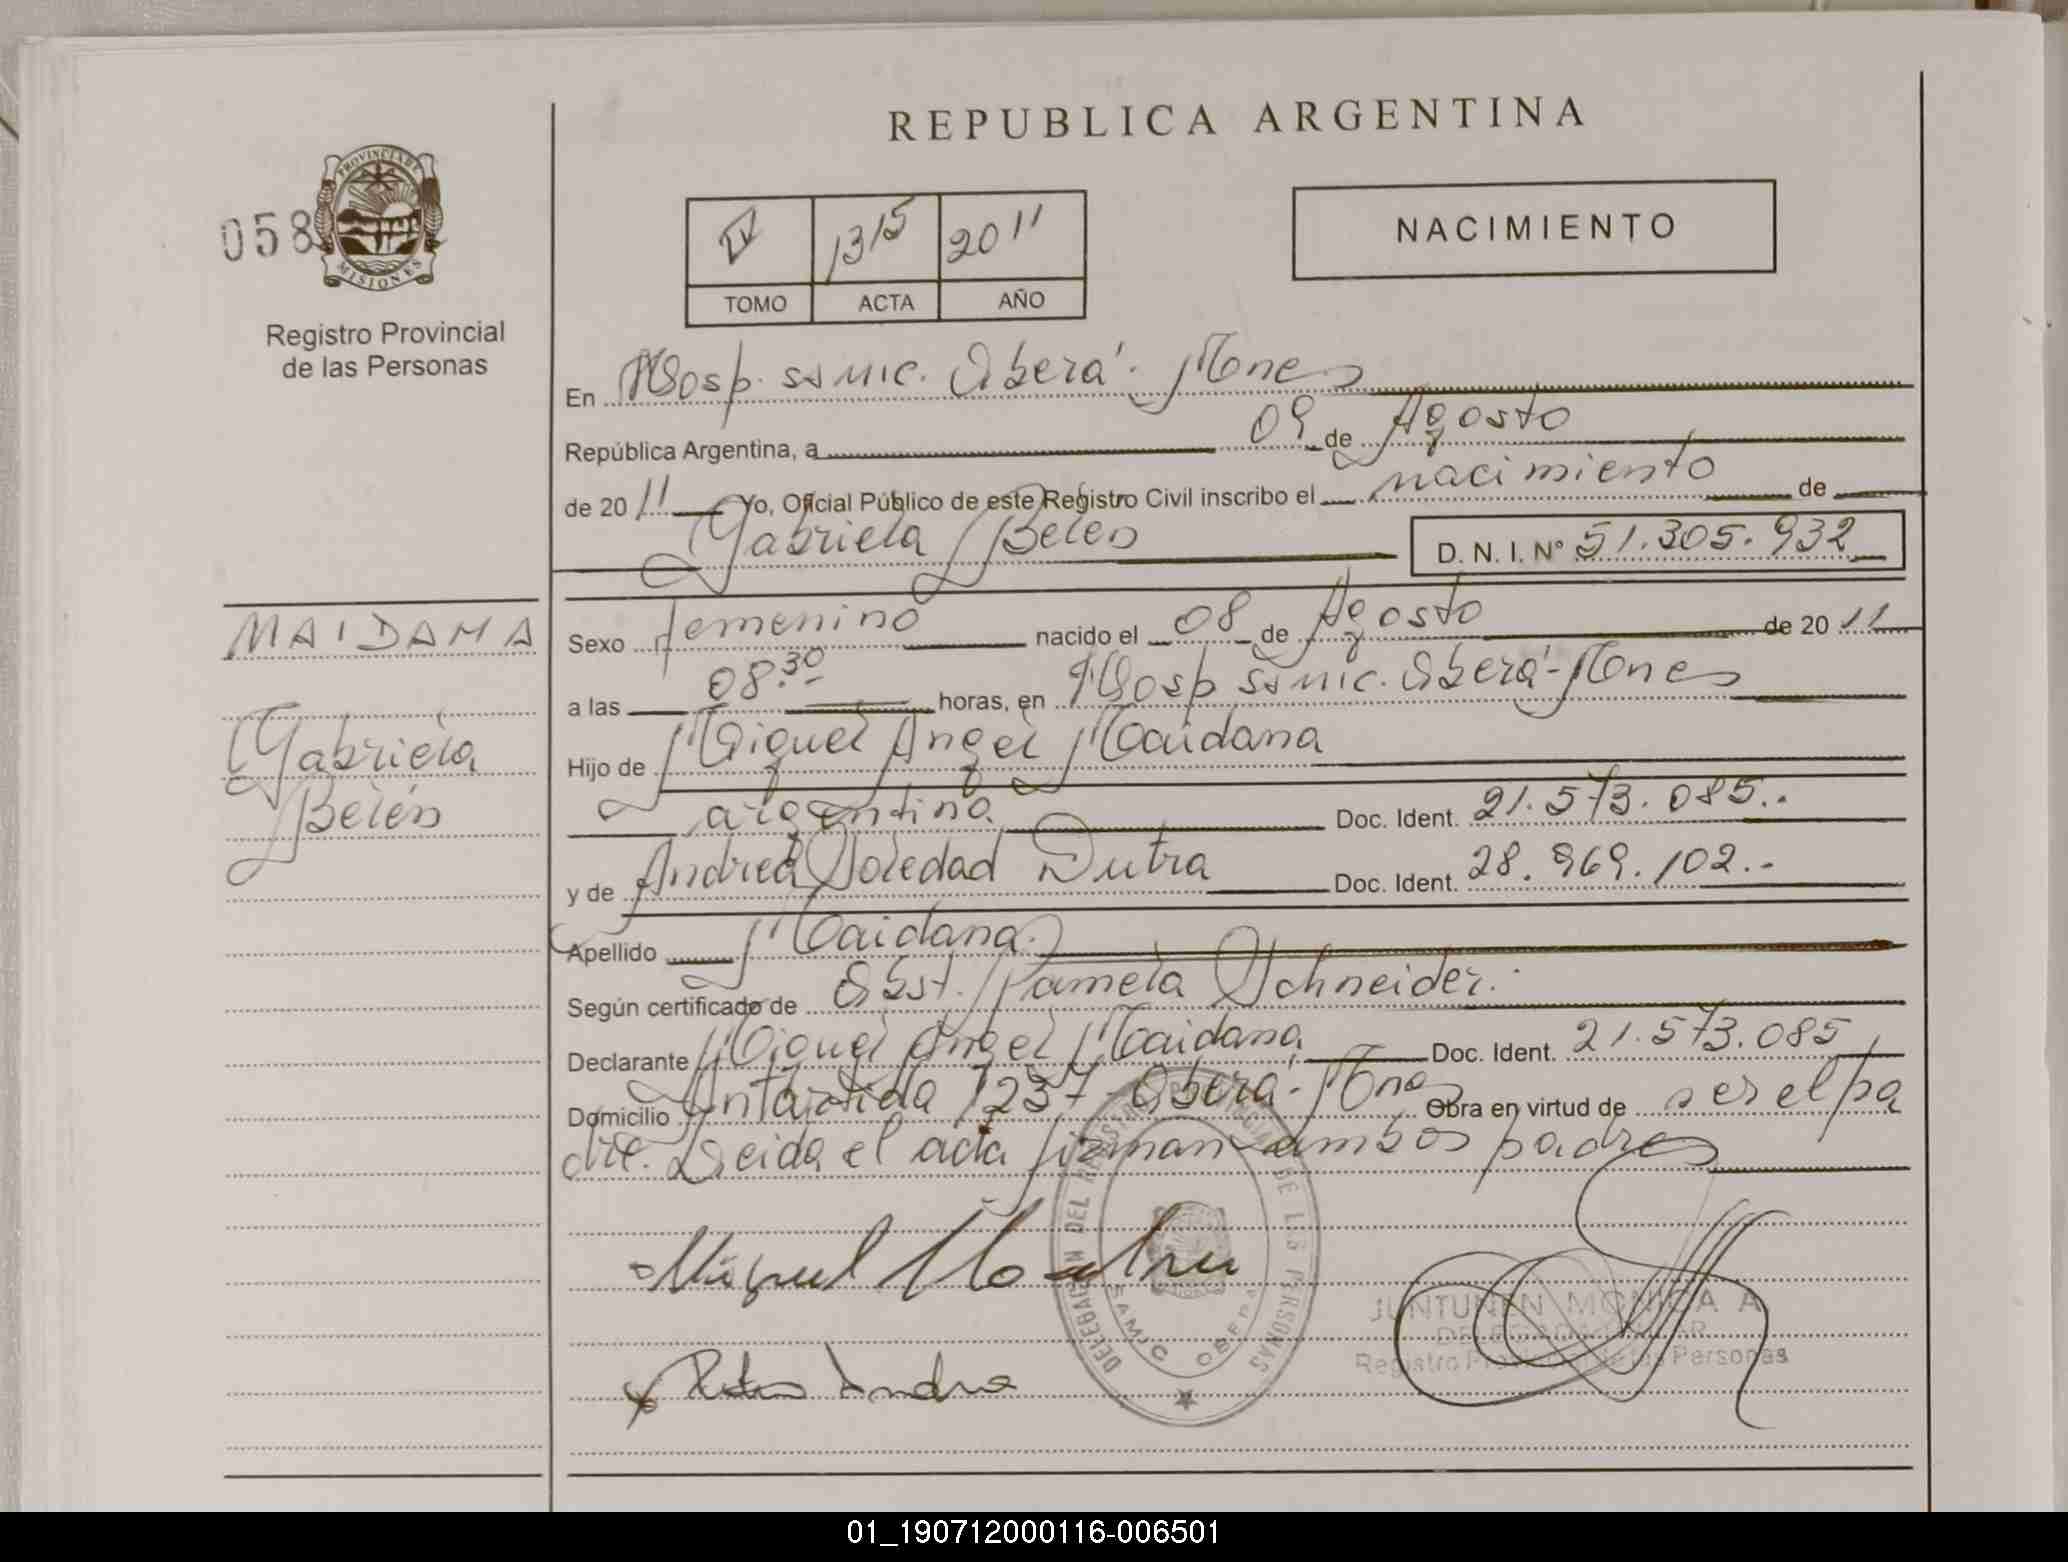 REPUBLICA ARGENTINA
058
PROVINCIA DE
MISIONES
Registro Provincial
de las Personas
IV 1315 2011
TOMO ACTA AÑO
NACIMIENTO
En Hosp. ssmic. Oberá. Mnes
República Argentina, a 09 de Agosto
de 2011 Yo, Oficial Público de este Registro Civil inscribo el nacimiento de
Gabriela Belen D. N. I. N° 51.305.932
MAIDANA
Gabriela
Belén
Sexo femenino nacido el 08 de Agosto de 2011
a las 08.30 horas, en Hosp ssmic. Oberá-Mnes
Hijo de Miguel Angel Maidana
argentina Doc. Ident. 21.573.085..
y de Andrea Soledad Dutra Doc. Ident. 28.969.102.-
Apellido Maidana.
Según certificado de Obst. Pamela Schneider.
Declarante Miguel Angel Maidana Doc. Ident. 21.573.085
Domicilio Antártida 1237 Oberá-Mnes Obra en virtud de ser el pa
dre. Leida el acta firman ambos padres
Miguel
DELEGACION DEL REGISTRO PROVINCIAL DE LAS PERSONAS
SAMIC OBERA
JUNTUNEN MONICA A
Registro Provincial de las Personas
01_190712000116-006501